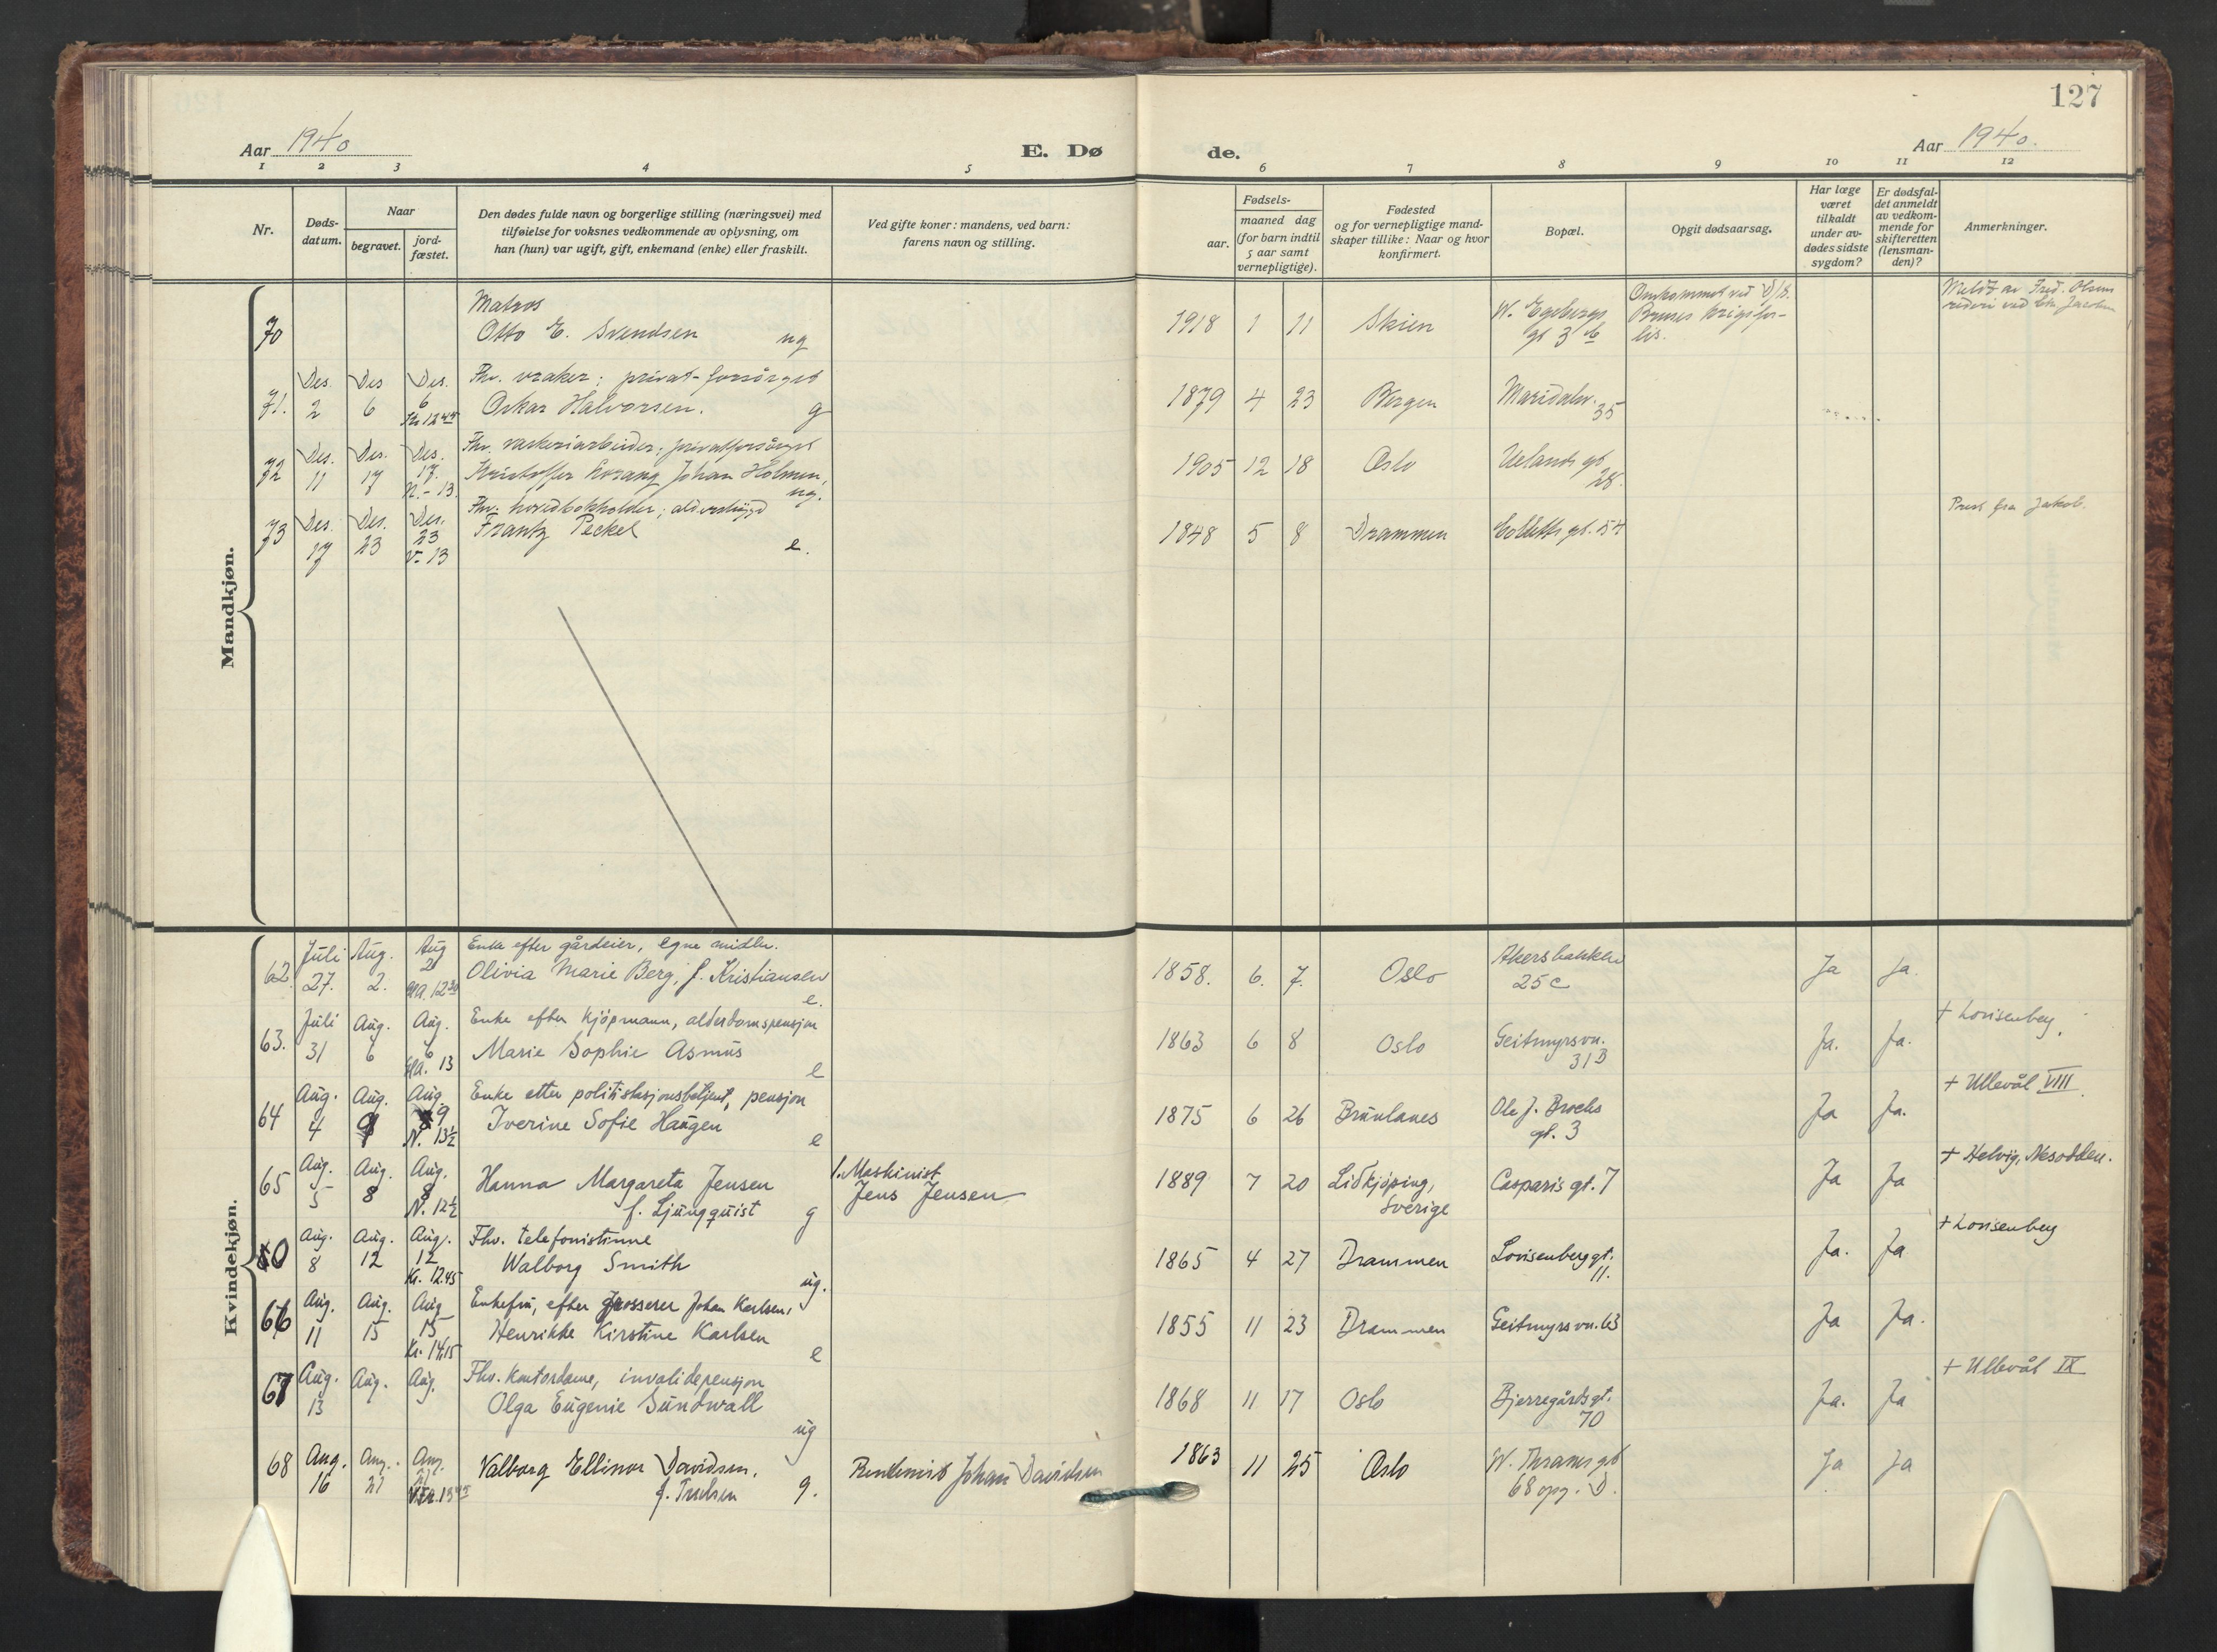 127
Aar 1940
E. Dø
de.
Aar 1940.
1 2 3 4 5 6 7 8 9 10 11 12
Nr.
Døds-
datum.
Naar
begravet.
jord-
fæstet.
Den dødes fulde navn og borgerlige stilling (næringsvei) med
tilføielse for voksnes vedkommende av oplysning, om
han (hun) var ugift, gift, enkemand (enke) eller fraskilt.
Ved gifte koner: mandens, ved barn:
farens navn og stilling.
Fødsels-
aar.
maaned dag
(for barn indtil
5 aar samt
vernepligtige).
Fødested
og for vernepligtige mand-
skaper tillike: Naar og hvor
konfirmert.
Bopæl.
Opgit dødsaarsag.
Har læge
været
tilkaldt
under av-
dødes sidste
sygdom?
Er dødsfal-
det anmeldt
av vedkom-
mende for
skifteretten
(lensman-
den)?
Anmerkninger.
Mandkjøn.
70
Matros
Otto E. Svendsen ug
1918 1 11 Skien
W. Egebergs
gt 3 b
Omkommet ved D/S.
Bruses krigsfor-
lis.
Meldt av Fred. Olsens
rederi ved
71.
Des. Des Des.
2 6 6
Kr 12 45
Fhv. vraker; privat-forsørget
Oskar Halvorsen. g
1879 4 23 Bergen
Maridalsv.
35
72
Des. Des. Des.
11 17 17.
N. - 13.
Fhv. væskeriarbeider; privatforsørget
Kristoffer Johan Holmen,
ug.
1905 12 18 Oslo
Uelands gt
28.
73
Des. Des. Des.
17 23 23
V. 13
Fhv. hovedbokholder;
Frantz Peckel
e.
1848 5 8 Drammen
Colletts gt. 54
Prest fra Jakob.
Kvindekjøn.
62.
Juli Aug. Aug
27. 2. 2
12 30
Enke efter gårdeier, egne midler.
Olivia Marie Berg, f. Kristiansen
e.
1858. 6. 7. Oslo
Akersbakken
25 c
Ja Ja.
63.
Juli Aug. Aug.
31 6 6
13
Enke efter kjøpmann, alderdomspensjon
Marie Sophie Asmus
e
1863 6 8 Oslo
Geitmyrsvn.
31 B
Ja. Ja.
+ Lovisenberg.
64
Aug. Aug. Aug.
4 9 9
N. 13½
Enke etter politistasjonsbetjent, pensjon
Iverine Sofie Haugen
e
1875 6 26 Brunlanes
Ole J. Brochs
gt. 3
Ja Ja.
+ Ullevål VIII.
65
Aug. Aug. Aug.
5 8 8
N. 12½
Hanna Margareta Jensen
f. Ljungquist g
1. Maskinist
Jens Jensen
1889 7 20 Lidkjøping,
Sverige
Casparis gt. 7
Ja Ja
+ Helvig, Nesodden.
Aug. Aug. Aug.
8 12 12
Kr. 12.45
Fhv. telefonistinne
Walborg Smith
ug.
1865 4 27 Drammen
Lovisenberggt.
11.
Ja. Ja
+ Lovisenberg
66
Aug. Aug. Aug
11 15 15
Kr. 14.15
Enkefru, efter grosserer Johan Karlsen,
Henrikke Kirstine Karlsen
e
1855 11 23 Drammen
Geitmyrsvn. 63
Ja Ja.
67
Aug. Aug. Aug.
13
Fhv. kontordame, invalidepensjon
Olga Eugenie Sundwall
ug
1868 11 17 Oslo
Bjerregårdsgt.
70
Ja. Ja
+ Ullevål IX
68
Aug. Aug. Aug.
16 21 21
Valborg Ellinor Davidsen.
f. g.
Johan Davidsen
1863 11 25 Oslo
W. Thranes gt
68 opg. D.
Ja Ja